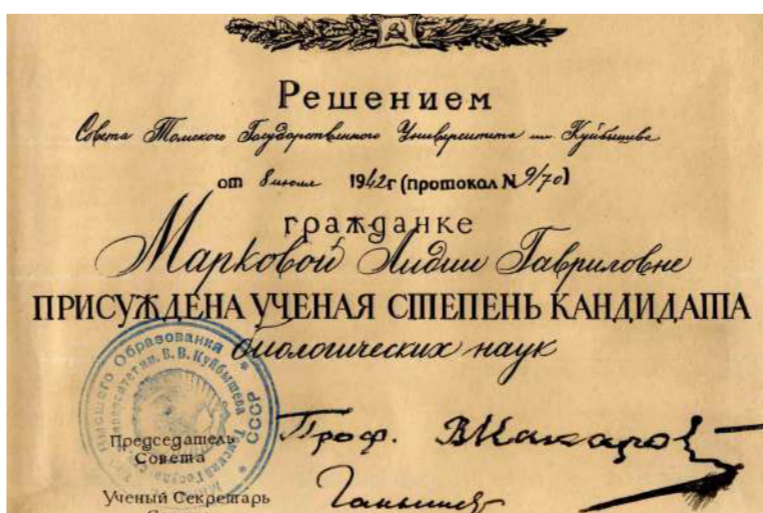 Решением
Совета Томского Государственного Университета им. Куйбышева
от 8 июля 1942г (протокол N 9/70)
гражданке
Марковой Лидии Гавриловне
ПРИСУЖДЕНА УЧЕНАЯ СТЕПЕНЬ КАНДИДАТА
биологических наук
Высшего Образования СССР
Университет им. В. В. Куйбышева
Председатель
Совета
Проф. В Макаров
Ученый Секретарь